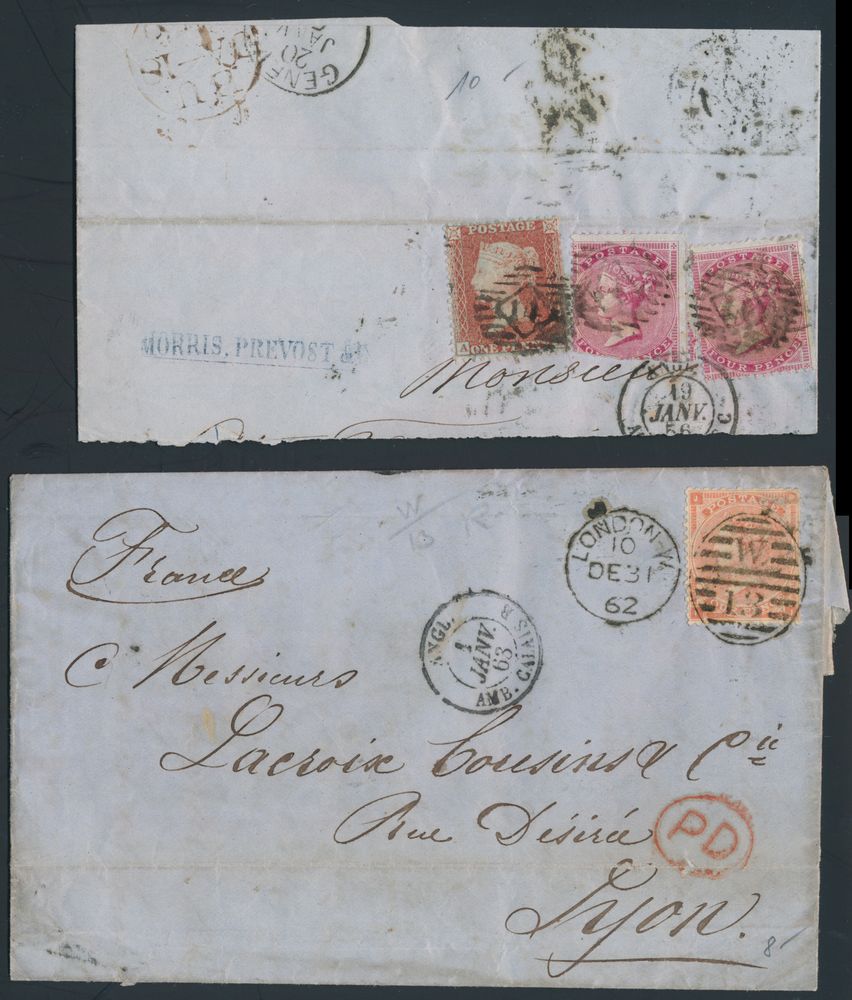 GENE
20
JANV
10
POSTAGE
A
ONE
POSTAGE
POSTAGE
FOUR PENCE
MORRIS. PREVOST &
Monsieur
19
JANV.
56
W/13
LONDON-W
10
DE31
62
J
POSTAGE
W.
13
France
ANGL.
1
JANV.
63
AMB. CALAIS B
Messieurs
Lacroix Cousins & Cie
Rue Désirée
PD
Lyon.
8